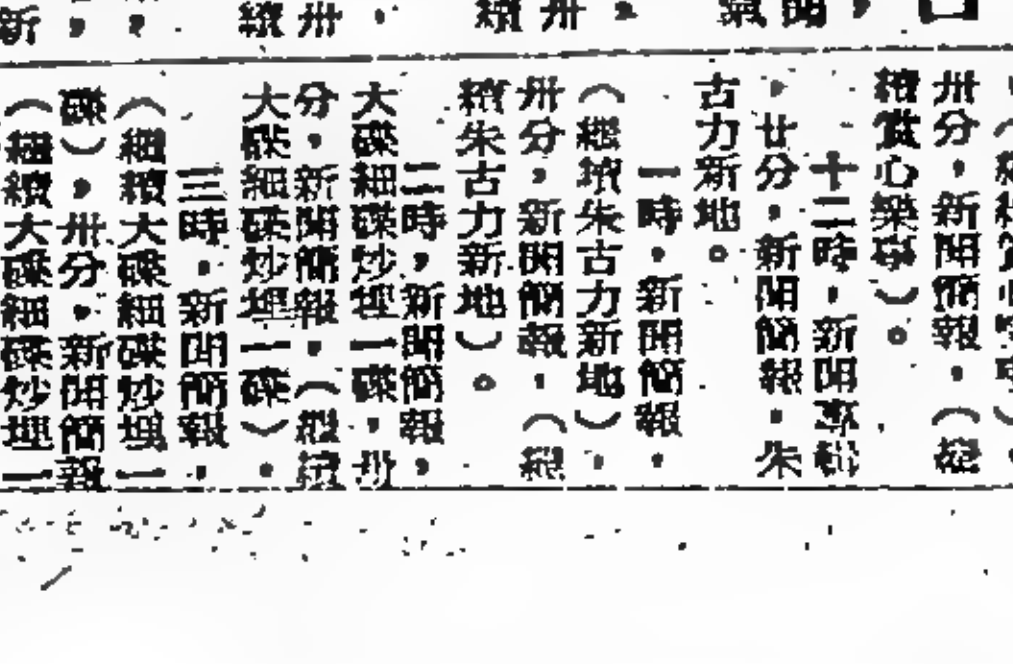 卅分，新聞簡報，（繼
續賞心樂事）。
十二時，新聞專輯
，廿分，新聞簡報，朱
古力新地。
一時，新聞簡報，
（繼續朱古力新地），
卅分，新聞簡報，（繼
續朱古力新地）。
二時，新聞簡報，
大碟細碟炒埋一碟，卅
分，新聞簡報，（繼續
大碟細碟炒埋一碟）。
三時，新聞簡報，
（繼續大碟細碟炒埋一
碟），卅分，新聞簡報
（繼續大碟細碟炒埋一